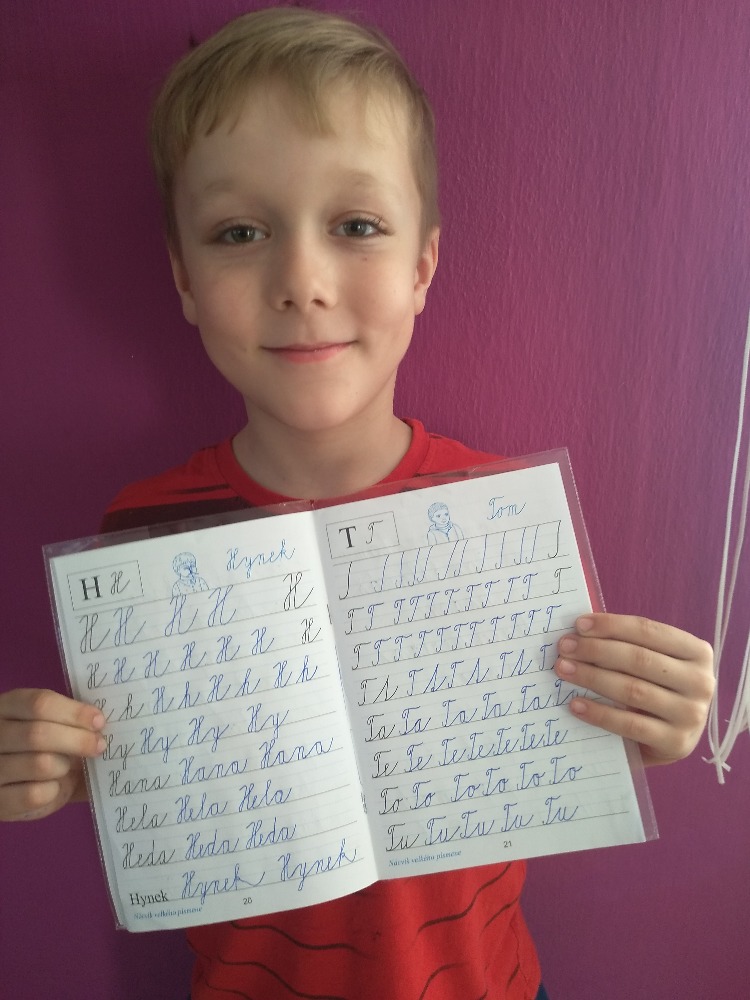 H H Hynek
H H H H H
H H H H H H H
H h H h H h H h
Hy Hy Hy Hy
Hana Hana Hana
Hela Hela Hela
Heda Heda Heda
Hynek Hynek Hynek
Nácvik velkého písmene 20
T T Tom
T T T T T T T T T T T
T T T T T T T T T T
T t T t T t T t T
Ta Ta Ta Ta Ta Ta
Te Te Te Te Te Te Te
To To To To To To
Tu Tu Tu Tu Tu
Nácvik velkého písmene 21